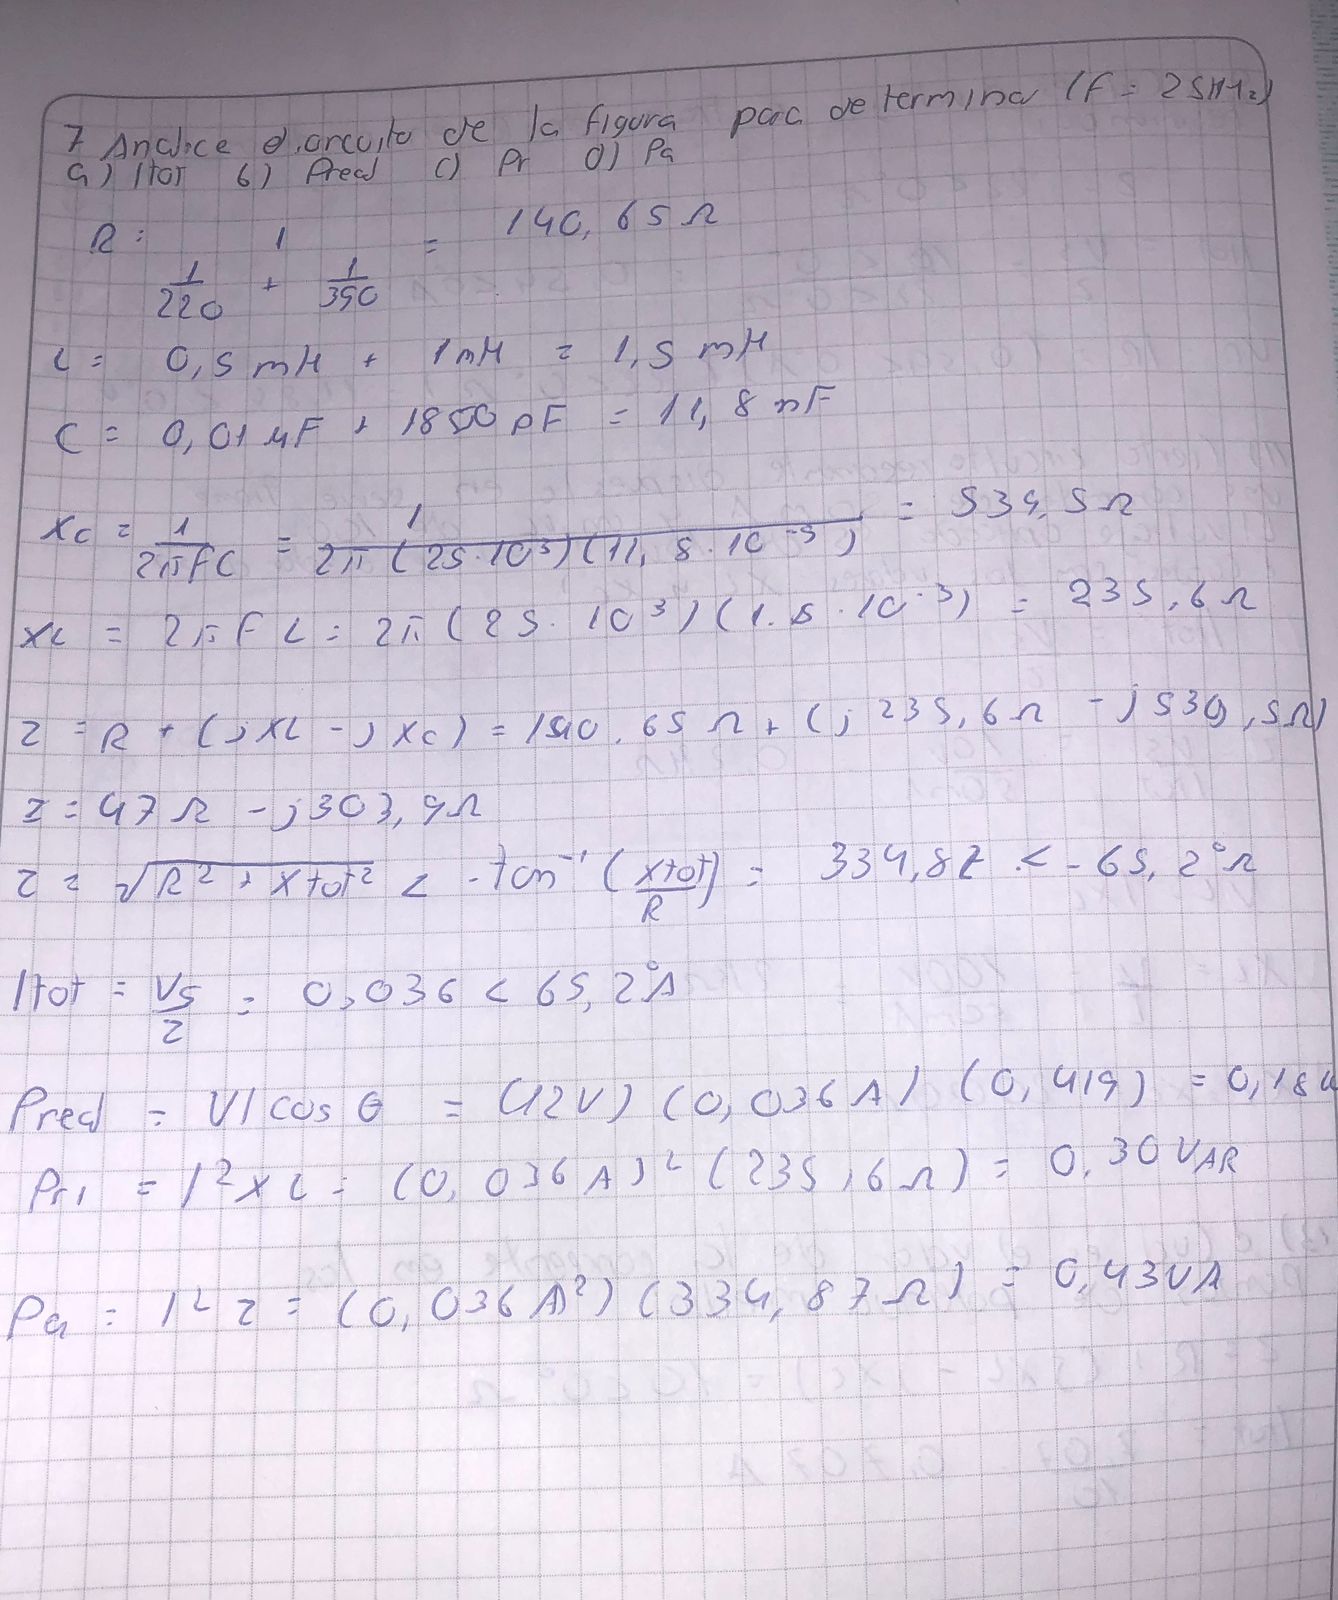 7 Analice el circuito de la figura para determina (f = 25 kHz)
a) Itot b) Preal c) Pr d) Pa
R: 1 / (1/220 + 1/390) = 140,65 Ω
L = 0,5 mH + 1 mH = 1,5 mH
C = 0,01 μF + 1800 pF = 11,8 nF
Xc = 1/2πFC = 1/2π(25·10³)(11,8·10⁻⁹) = 539,5 Ω
XL = 2πFL = 2π(25·10³)(1.5·10⁻³) = 235,6 Ω
Z = R + (jXL - jXc) = 140.65 Ω + (j 235,6 Ω - j 539,5 Ω)
Z = 47 Ω - j303,9 Ω
Z = √R² + Xtot² < -tan⁻¹ (Xtot/R) = 334,87 < -65,2° Ω
Itot = Vs/Z = 0,036 < 65,2° A
Preal = VI cos θ = (12V) (0,036 A) (0,419) = 0,18
Pr1 = I² XL = (0,036 A)² (235,6 Ω) = 0,30 VAR
Pa = I² Z = (0,036 A²) (334,87 Ω) = 0,43 VA